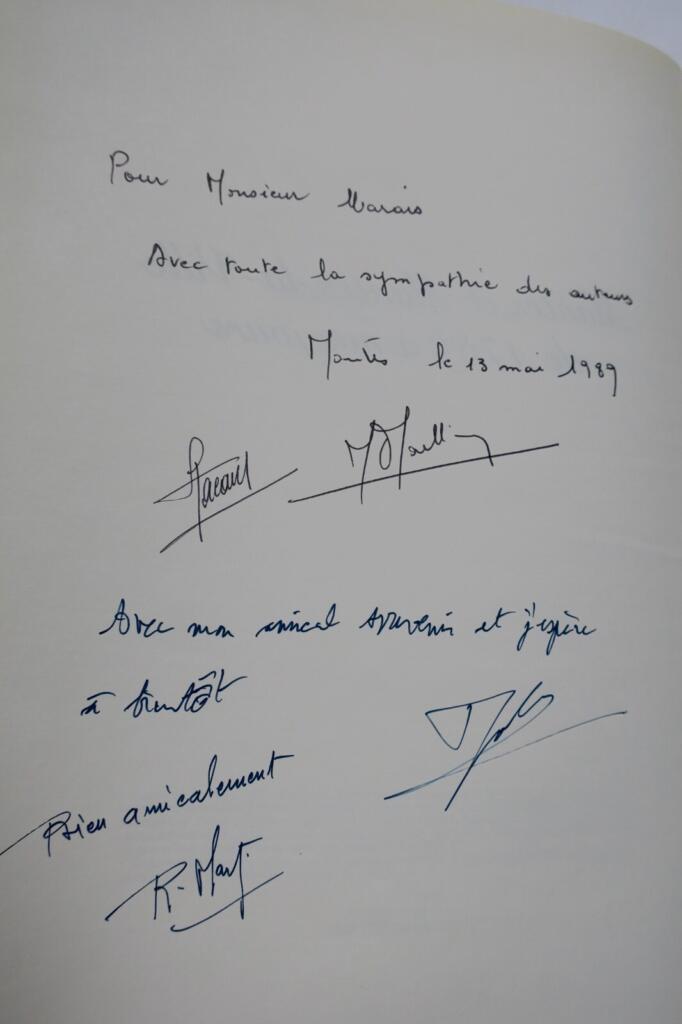 Pour Monsieur Marais
Avec toute la sympathie des auteurs
le 13 mai 1989
Avec mon amical souvenir et j'espère
à bientôt
Bien amicalement
R.